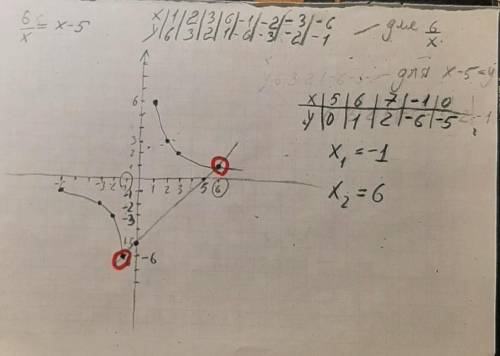 6/x = x-5
x|1|2|3|6|-1|-2|-3|-6
y|6|3|2|1|-6|-3|-2|-1
для 6/x
для x-5=y
x|5|6|7|-1|0
y|0|1|2|-6|-5
x₁ = -1
x₂ = 6
6
3
2
1
-6 -3 -2 -1 1 2 3 5 6
-1
-2
-3
-5
-6